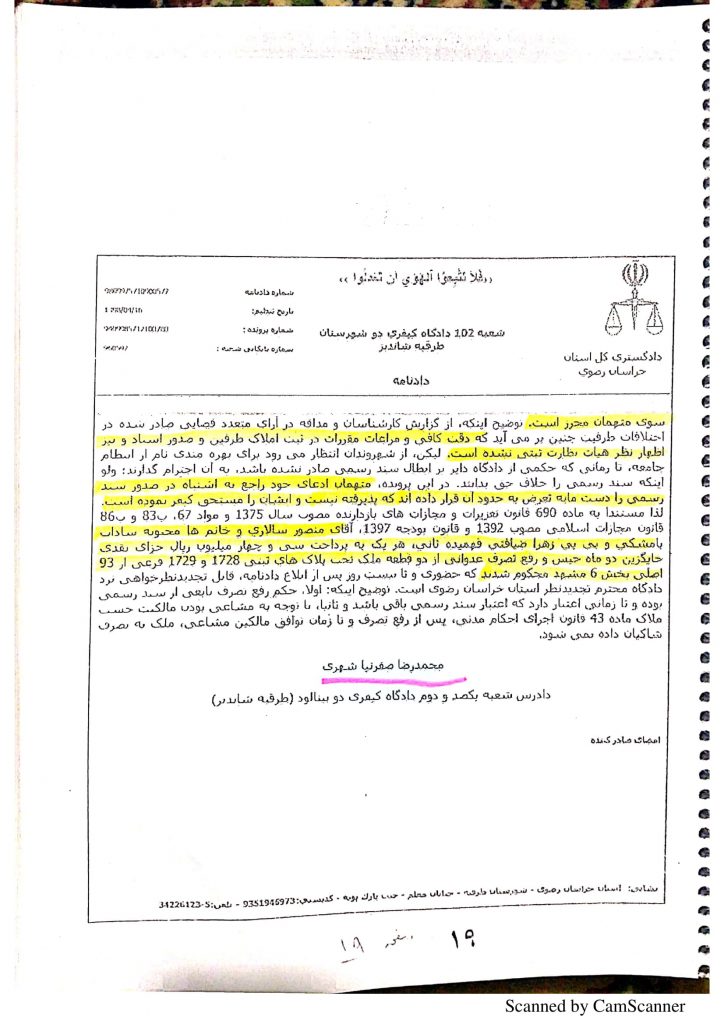 «فَلَا تَتَّبِعُوا الْهَوَىٰ أَنْ تَعْدِلُوا»
شماره دادنامه
تاریخ تنظیم:
شماره پرونده :
شماره بایگانی شعبه :
شعبه 102 دادگاه کیفری دو شهرستان
طرقبه شاندیز
دادگستری کل استان
خراسان رضوی
دادنامه
سوی متهمان محرز است. توضیح اینکه، از گزارش کارشناسان و مداقه در آرای متعدد قضایی صادر شده در
اختلافات طرفیت چنین بر می آید که دقت کافی و مراعات مقررات در ثبت املاک طرفین و صدور اسناد و نیز
اظهار نظر هیات نظارت ثبتی نشده است. لیکن، از شهروندان انتظار می رود برای بهره مندی تام از انتظام
جامعه، تا زمانی که حکمی از دادگاه دایر بر ابطال سند رسمی صادر نشده باشد، به آن احترام گذارند؛ ولو
اینکه سند رسمی را خلاف حق بدانند. در این پرونده، متهمان ادعای خود راجع به اشتباه در صدور سند
رسمی را دست مایه تعرض به حدود آن قرار داده اند که پذیرفته نیست و ایشان را مستحق کیفر نموده است.
لذا مستندا به ماده 690 قانون تعزیرات و مجازات های بازدارنده مصوب سال 1375 و مواد 67، ب83 و ب86
قانون مجازات اسلامی مصوب 1392 و قانون بودجه 1397، آقای منصور سالاری و خانم ها محبوبه سادات
بامشکی و بی بی زهرا ضیافتی فهمیده ثانی، هر یک به پرداخت سی و چهار میلیون ریال جزای نقدی
جایگزین دو ماه حبس و رفع تصرف عدوانی از دو قطعه ملک تحت پلاک های ثبتی 1728 و 1729 فرعی از 93
اصلی بخش 6 مشهد محکوم شدند که حضوری و تا بیست روز پس از ابلاغ دادنامه، قابل تجدیدنظرخواهی نزد
دادگاه محترم تجدیدنظر استان خراسان رضوی است. توضیح اینکه: اولا، حکم رفع تصرف تابعی از سند رسمی
بوده و تا زمانی اعتبار دارد که اعتبار سند رسمی باقی باشد و ثانیا، با توجه به مشاعی بودن مالکیت حسب
ملاک ماده 43 قانون اجرای احکام مدنی، پس از رفع تصرف و تا زمان توافق مالکین مشاعی، ملک به تصرف
شاکیان داده نمی شود.
محمدرضا صفرنیا شهری
دادرس شعبه یکصد و دوم دادگاه کیفری دو بینالود (طرقبه شاندیز)
امضای صادر کننده
نشانی: استان خراسان رضوی - شهرستان طرقبه - خیابان معلم - جنب پارک پونه - کدپستی:9351946973 - تلفن:5-34226123
۱۹
۱۸
Scanned by CamScanner